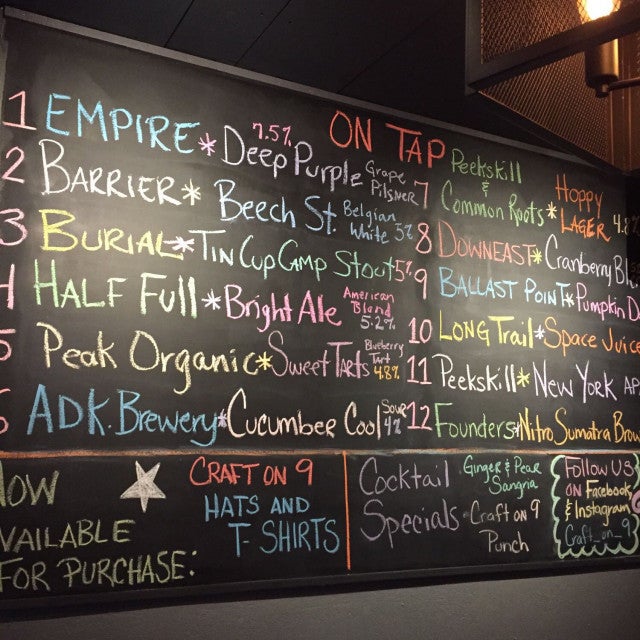 ON TAP
1 EMPIRE * 7.5% DEEP PURPLE Grape Pilsner
2 BARRIER * BEECH ST. Belgian White 5%
3 BURIAL * TIN CUP CAMP STOUT 5%
4 HALF FULL * BRIGHT ALE American Blond 5.2%
5 PEAK ORGANIC * SWEET TARTS Blueberry Tart 4.8%
6 ADK. BREWERY * CUCUMBER COOL Sour 4%
7 PEEKSKILL & COMMON ROOTS * HOPPY LAGER 4.8
8 DOWNEAST * CRANBERRY
9 BALLAST POINT * PUMPKIN
10 LONG TRAIL * SPACE JUICE
11 PEEKSKILL * NEW YORK
12 FOUNDERS * NITRO SUMATRA
NOW
AVAILABLE
FOR PURCHASE:
CRAFT ON 9
HATS AND
T-SHIRTS
Cocktail
Specials
Ginger & Pear
Sangria
Craft on 9
Punch
Follow Us
on Facebook
& Instagram
Craft_on_9